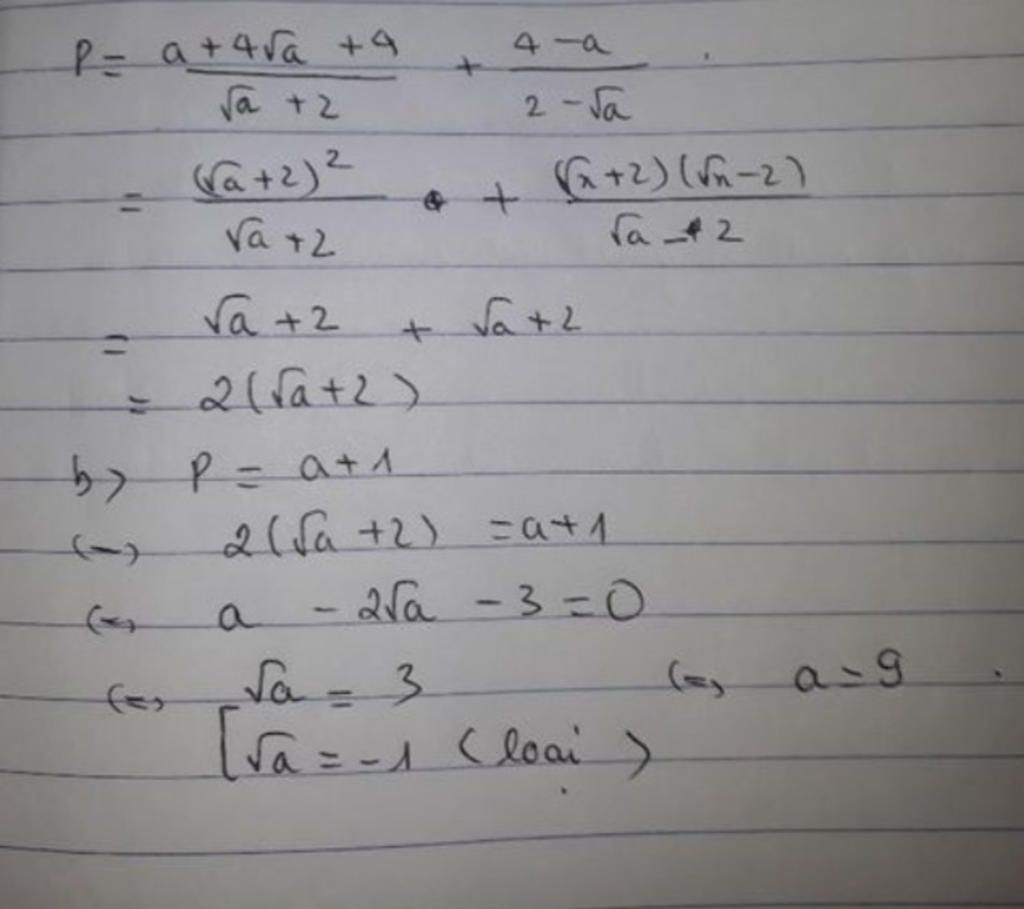 P = (a + 4√a + 4)/(√a + 2) + (4 - a)/(2 - √a)
= (√a + 2)²/(√a + 2) + (√x + 2)(√x - 2)/(√a - 2)
= √a + 2 + √a + 2
= 2(√a + 2)
b> P = a + 1
<=> 2(√a + 2) = a + 1
<=> a - 2√a - 3 = 0
<=> √a = 3 <=> a = 9
[√a = -1 (loại)